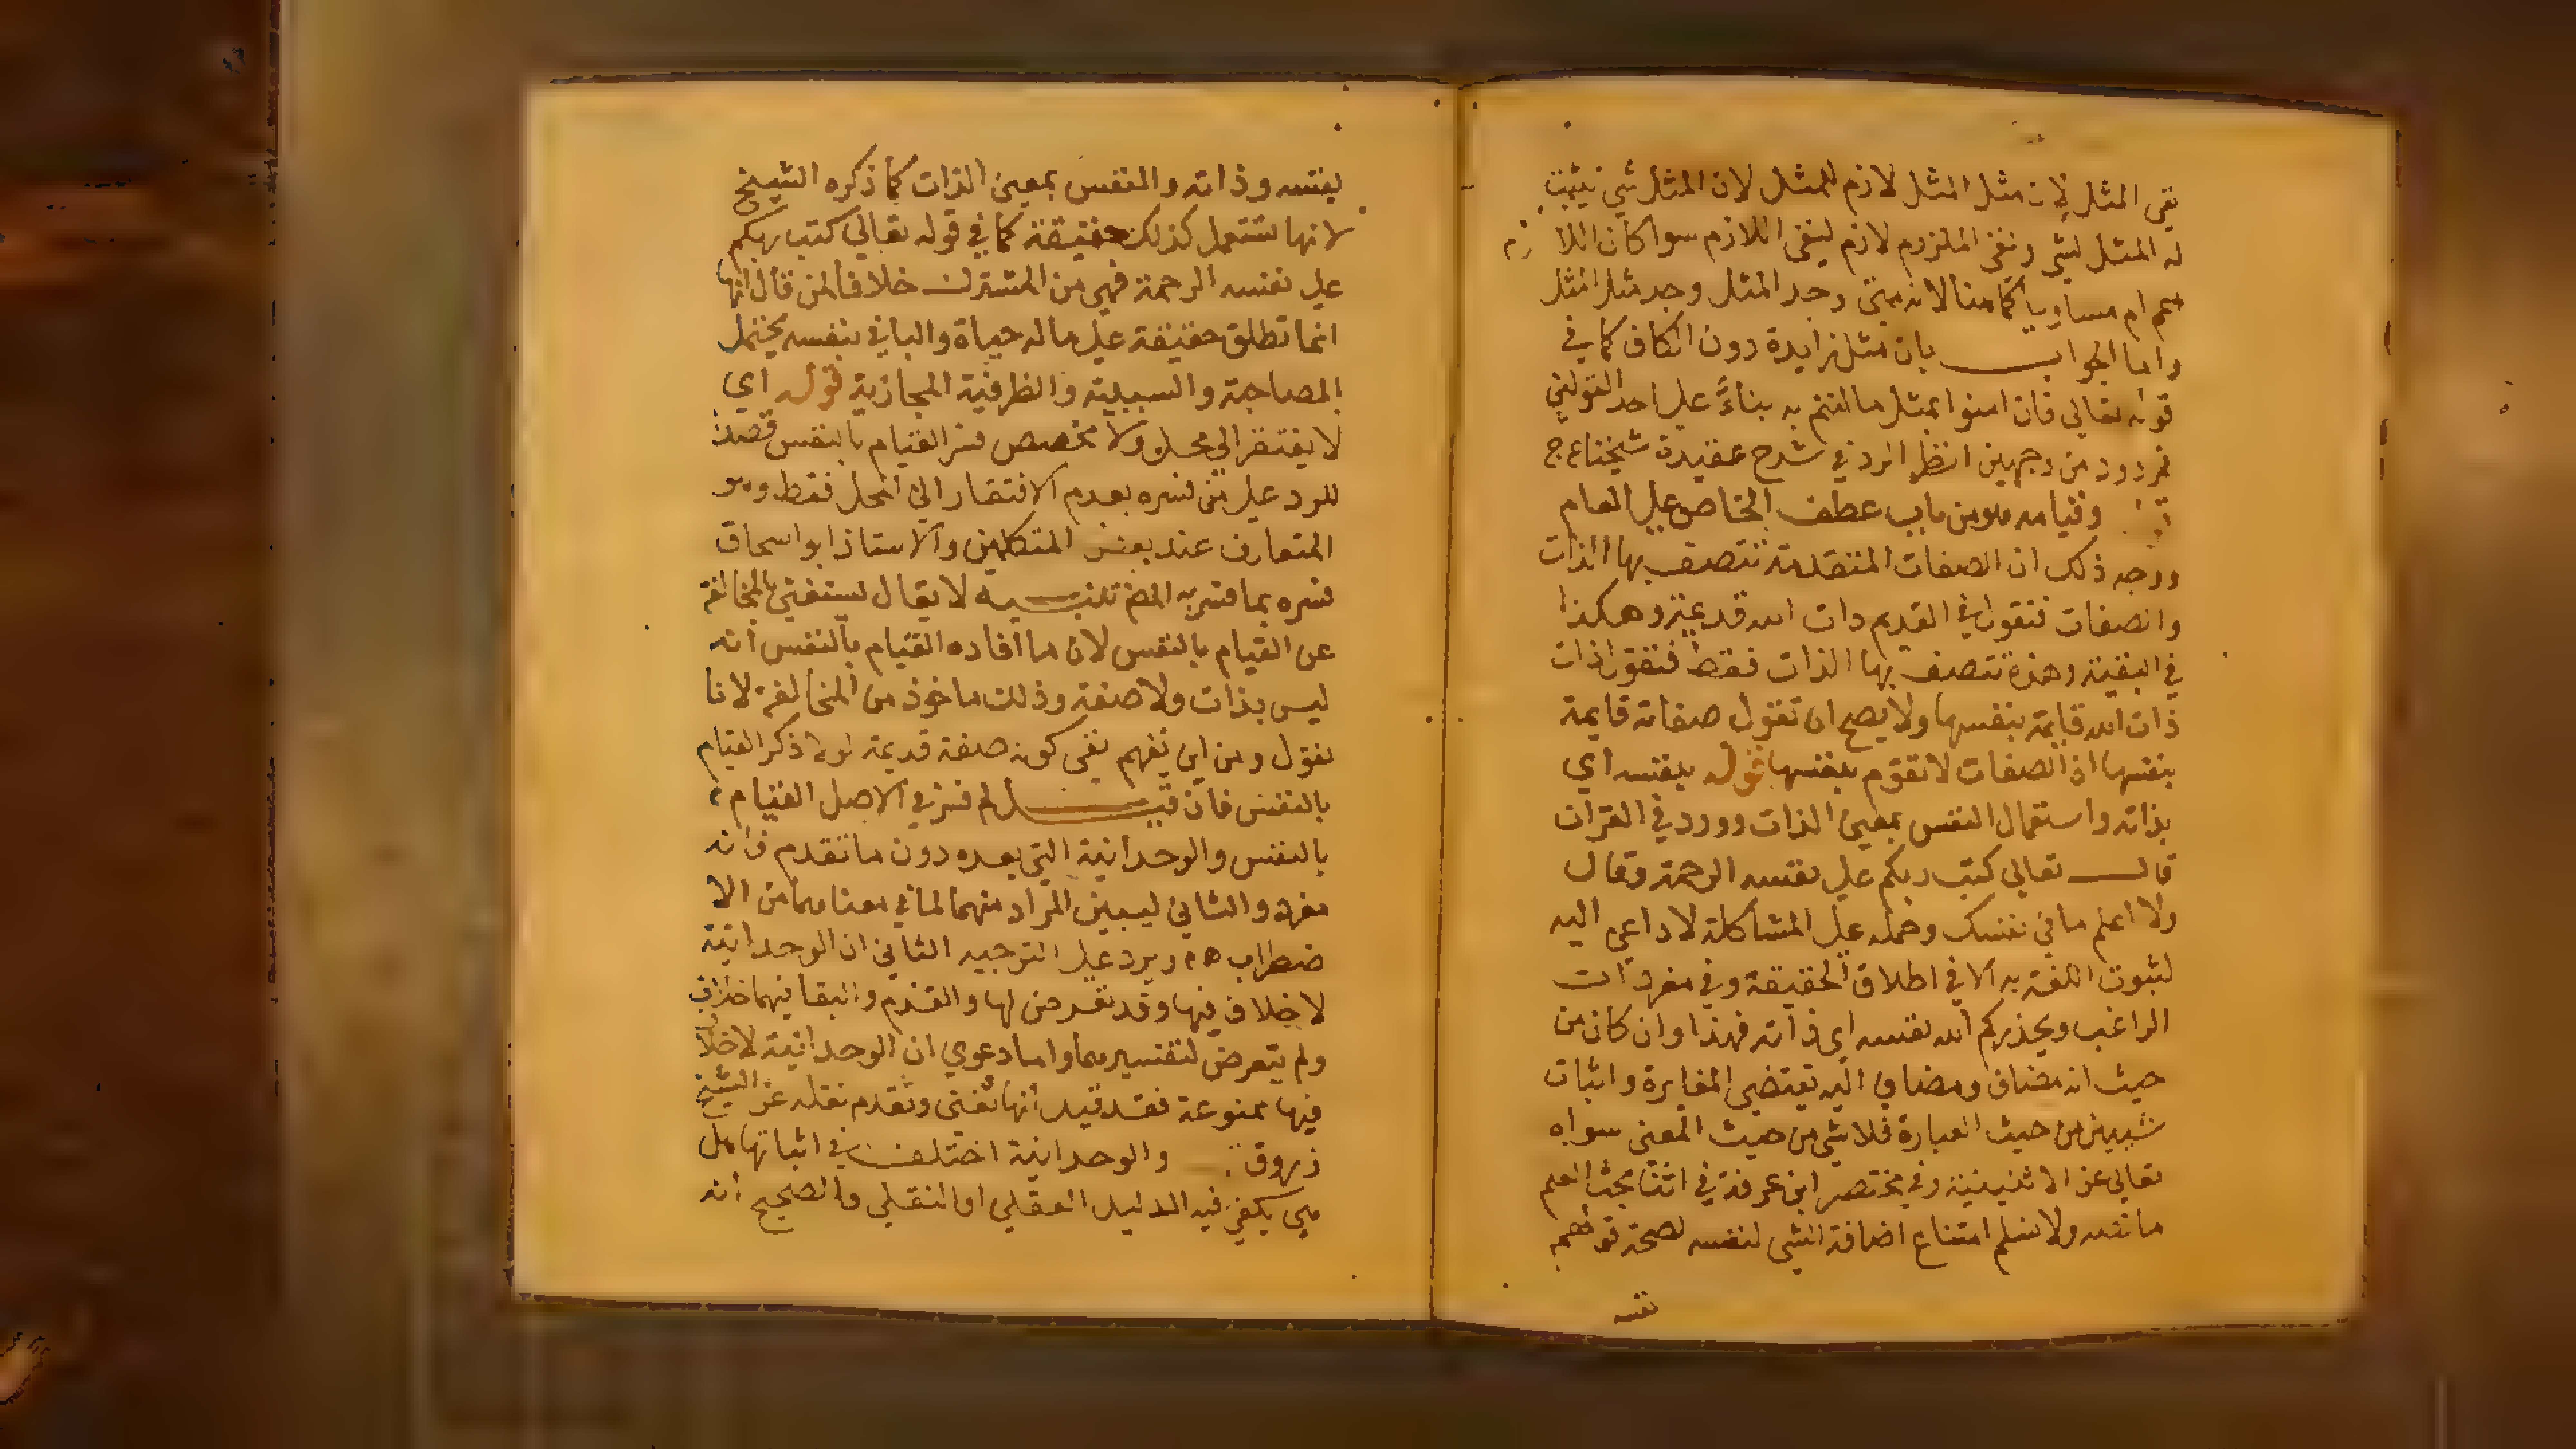 نفي المثل لان مثل المثل لازم للمثل لان المثل شي يثبت
له المثل لشي ونفي الملزوم لازم لنفي اللازم سوا كان اللازم
اعم ام مساويا كما هنا لانه متى وجد المثل وجد مثل المثل
واما الجواب بان مثل زايدة دون الكاف كما في
قوله تعالى فان امنوا بمثل ما امنتم به بناءً على احد القولين
فمردود من وجهين انظر الرد في شرح عقيدة شيخنا ع ج
وقيامه هو من باب عطف الخاص على العام
ووجه ذلك ان الصفات المتقدمة تتصف بها الذات
والصفات فتقول في القديم ذات الله قديمة وهكذا
في البقية وهذه تتصف بها الذات فقط فتقول ذات
ذات الله قايمة بنفسها ولا يصح ان تقول صفاته قايمة
بنفسها اذ الصفات لا تقوم بنفسها قوله بنفسه اي
بذاته واستعمال النفس بمعنى الذات وورد في القران
قال تعالى كتب ربكم على نفسه الرحمة وقال
ولا اعلم ما في نفسك وحمله على المشاكلة لا داعي اليه
لثبوت اللغة به الا في اطلاق الحقيقة وفي مفردات
الراغب ويحذركم الله نفسه اي ذاته فهذا وان كان من
حيث انه مضاف ومضاف اليه يقتضي المغايرة واثبات
شييين من حيث العبارة فلا شي من حيث المعنى سواه
تعالى عن الاثنينية وفي مختصر ابن عرفة في اثنا بحث العلم
ما نصه ولا نسلم امتناع اضافة الشي لنفسه لصحة قولهم
نفسه
نفسه وذاته والنفس بمعنى الذات كما ذكره الشيخ
لانها تستعمل كذلك حقيقة كما في قوله تعالى كتب ربكم
على نفسه الرحمة فهي من المشترك خلافا لمن قال انها
انما تطلق حقيقة على ما له حياة والبا في بنفسه يحتمل
المصاحبة والسببية والظرفية المجازية قوله اي
لا يفتقر الى محل ولا مخصص فسر القيام بالنفس قصدا
للرد على من فسره بعدم الافتقار الى المحل فقط وهو
المتعارف عند بعض المتكلمين والاستاذ ابو اسحاق
فسره بما فسر به المص تنبيه لا يقال يستغني بالمخالفة
عن القيام بالنفس لان ما افاده القيام بالنفس انه
ليس بذات ولا صفة وذلك ماخوذ من المخالفة لانا
نقول ومن اين يفهم نفي كونه صفة قديمة لولا ذكر القيام
بالنفس فان قيل لم فسر في الاصل القيام
بالنفس والوحدانية التي بعده دون ما تقدم فانه
مفرد والثاني ليبين المراد منهما لما في معناهما من الا
ضطراب اه ويرد على التوجيه الثاني ان الوحدانية
لا خلاف فيها وقد تعرض لها والقدم والبقا فيهما خلاف
ولم يتعرض لتفسيرهما واما دعوي ان الوحدانية لا خلاف
فيها ممنوعة فقد قيل انها تغني وتقدم نقله عن الشيخ
زروق والوحدانية اختلف في اثباتها هل
هي يكفي فيه الدليل العقلي او النقلي والصحيح انه